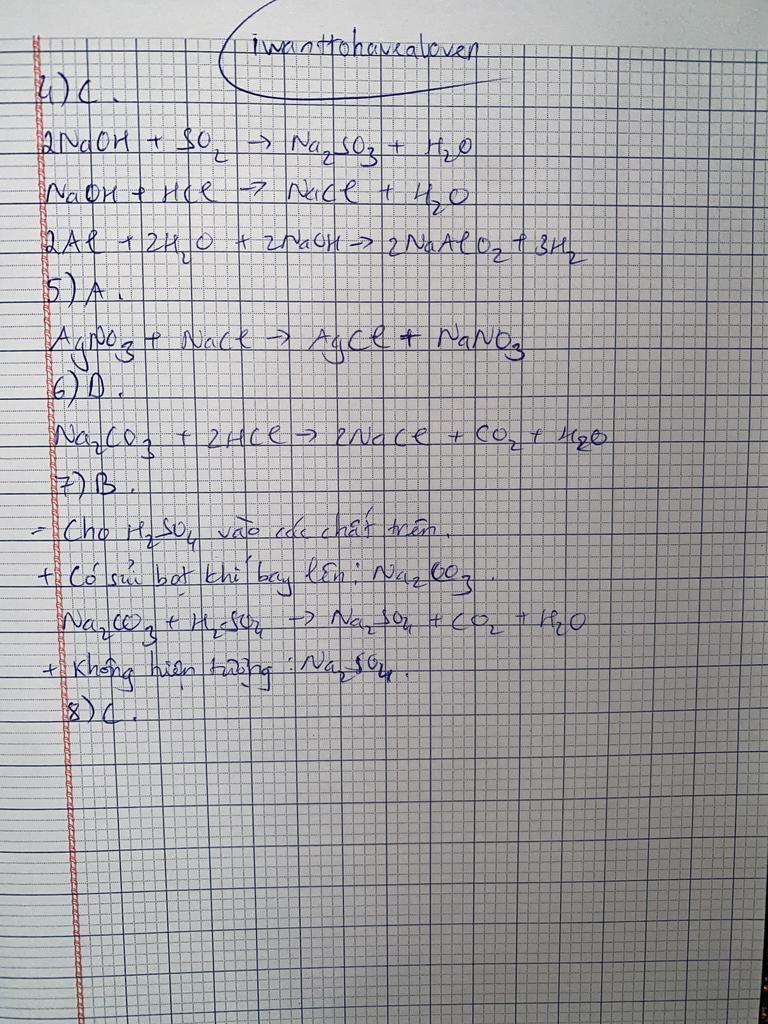 iwanttohavealoven
4) C.
2NaOH + SO₂ → Na₂SO₃ + H₂O
NaOH + HCl → NaCl + H₂O
2Al + 2H₂O + 2NaOH → 2NaAlO₂ + 3H₂
5) A.
AgNO₃ + NaCl → AgCl + NaNO₃
6) D.
Na₂CO₃ + 2HCl → 2NaCl + CO₂ + H₂O
7) B.
- Cho H₂SO₄ vào các chất trên.
+ Có sủi bọt khí bay lên : Na₂CO₃.
Na₂CO₃ + H₂SO₄ → Na₂SO₄ + CO₂ + H₂O
+ Không hiện tượng : Na₂SO₄.
8) C.